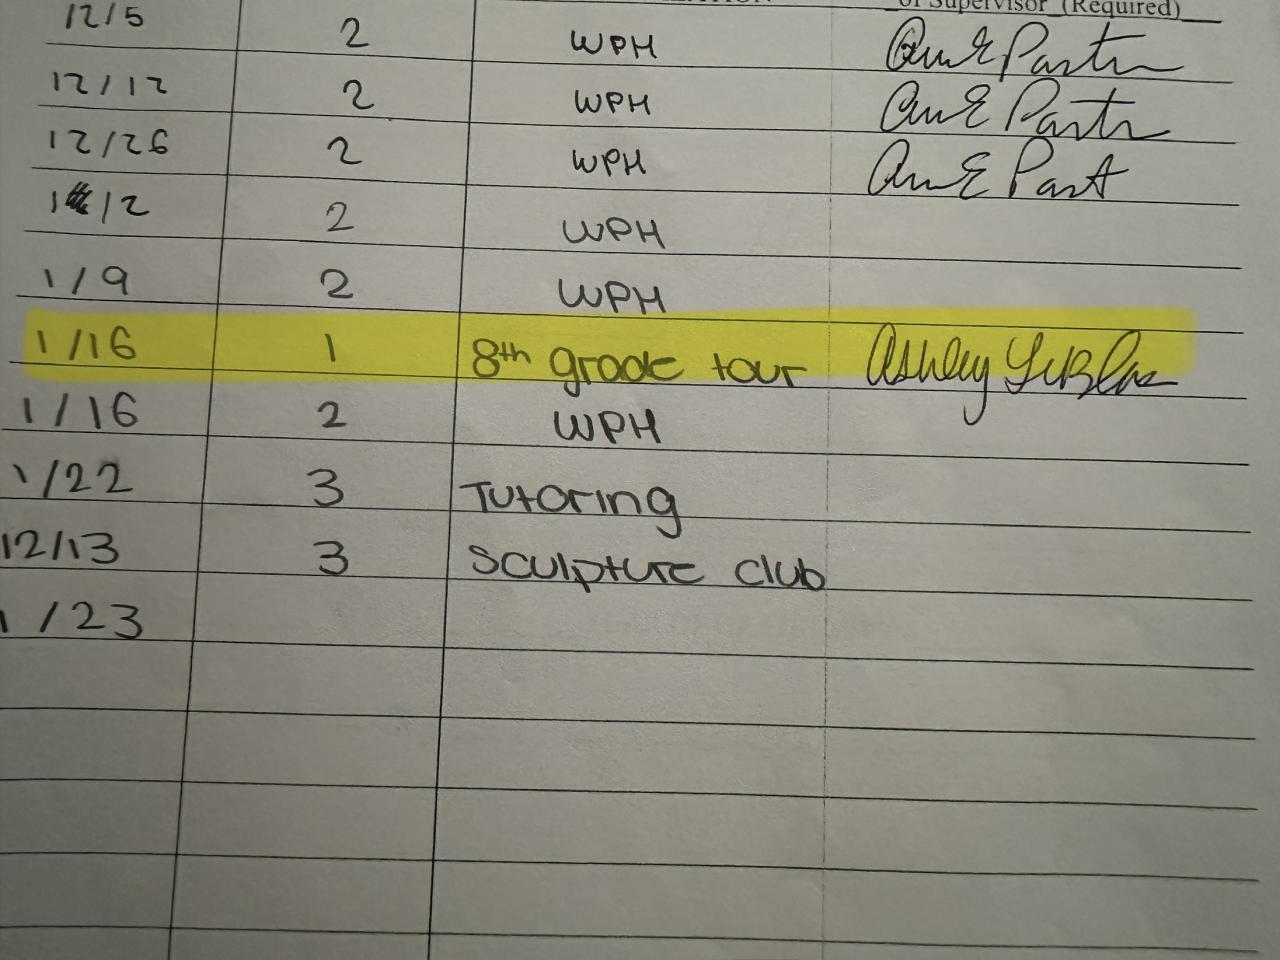 of Supervisor (Required)
12/5 2 WPH
12/12 2 WPH
12/26 2 WPH
1/2 2 WPH
1/9 2 WPH
1/16 1 8th grade tour Ashley
1/16 2 WPH
1/22 3 Tutoring
12/13 3 Sculpture club
1/23